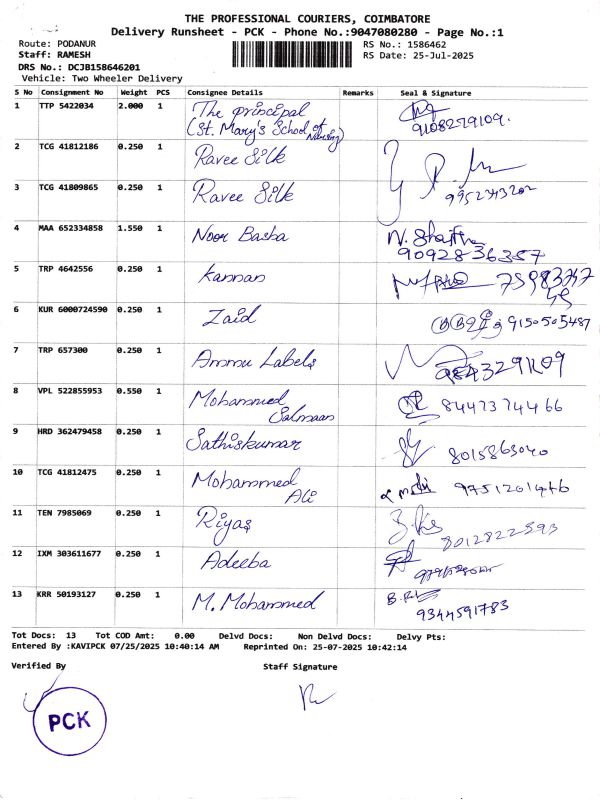 THE PROFESSIONAL COURIERS, COIMBATORE
Delivery Runsheet - PCK - Phone No.:9047080280 - Page No.:1
Route: PODANUR
RS No.: 1586462
Staff: RAMESH
RS Date: 25-Jul-2025
DRS No.: DCJB158646201
Vehicle: Two Wheeler Delivery
S No Consignment No Weight PCS Consignee Details Remarks Seal & Signature
1 TTP 5422034 2.000 1 The principal
(St. Mary's School of Nursing) 9108279109.
2 TCG 41812186 0.250 1 Ravee Silk
3 TCG 41809865 0.250 1 Ravee Silk 9952343202
4 MAA 652334858 1.550 1 Noor Basha
9092836357
5 TRP 4642556 0.250 1 Kannan
6 KUR 6000724590 0.250 1 Zaid 9150505487
7 TRP 657300 0.250 1 Ammu Labels
8 VPL 522855953 0.550 1 Mohammed
Salmaan 8447374466
9 HRD 362479458 0.250 1 Sathiskumar 8015863040
10 TCG 41812475 0.250 1 Mohammed
Ali 9751201466
11 TEN 7985069 0.250 1 Riyas 8012822593
12 IXM 303611677 0.250 1 Adeeba
13 KRR 50193127 0.250 1 M. Mohammed 9344591783
Tot Docs: 13 Tot COD Amt: 0.00 Delvd Docs: Non Delvd Docs: Delvy Pts:
Entered By :KAVIPCK 07/25/2025 10:40:14 AM Reprinted On: 25-07-2025 10:42:14
Verified By Staff Signature
PCK